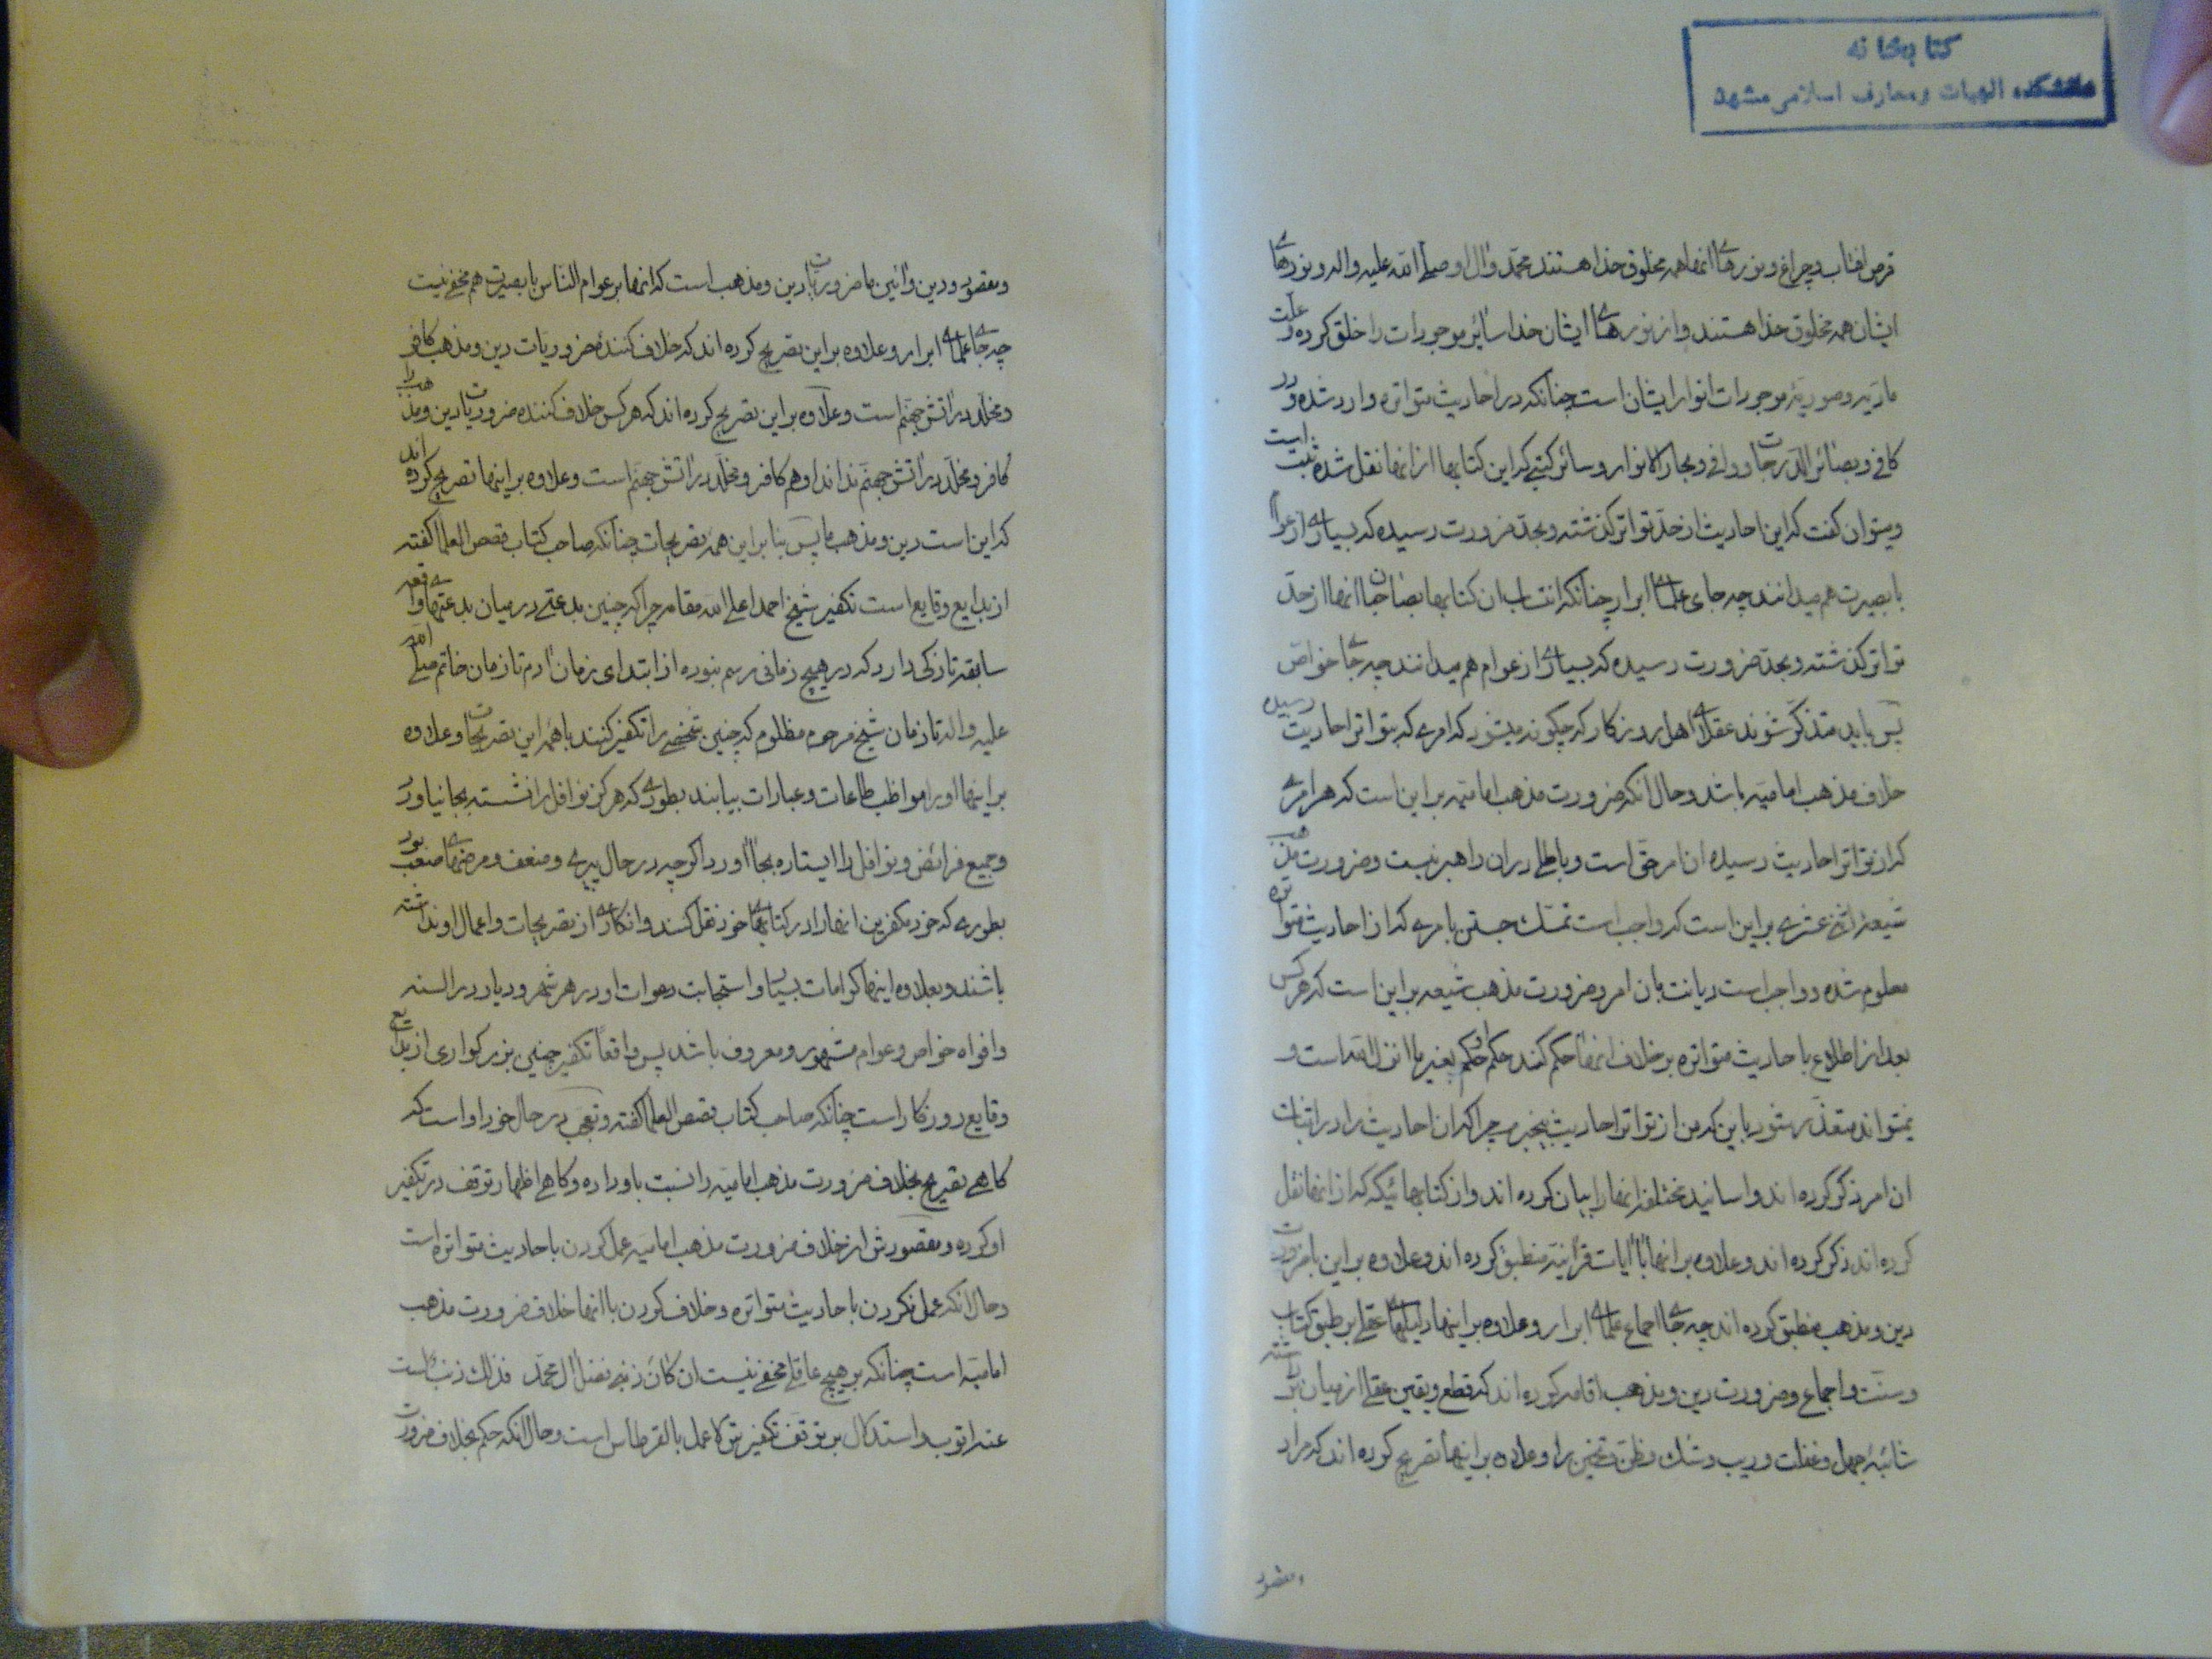 کتابخانه
دانشکده الهیات ومعارف اسلامی مشهد
قرص افتاب وچراغ ونورهای انها همه مخلوق خدا هستند محمّد وال او صلی الله علیه واله ونورهای
ایشان همه مخلوق خدا هستند واز نورهای ایشان خدا سائر موجودات را خلق کرده وعلّت
مادّیه وصوریّه موجودات انوار ایشان است چنانکه در احادیث متواتره وارد شده ودر
کافی وبصائر الدّرجات ووافی وبحار الانوار وسائر کتبی که این کتابها از انها نقل شده ثبت است
ومیتوان گفت که این احادیث از حدّ تواتر گذشته وبحدّ ضرورت رسیده که بسیاری از عوام
با بصیرت هم میدانند چه جای علمای ابرار چنانکه انتساب ان کتابها بصاحبان انها از حدّ
تواتر گذشته وبحدّ ضرورت رسیده که بسیاری از عوام هم میدانند چه جای خواصّ
پس باید متذکّر شوند عقلای اهل روزکار که چگونه میشود که امری که بتواتر احادیث رسیده
خلاف مذهب امامیّه باشد وحال انکه ضرورت مذهب امامیّه بر این است که هر امری
که از تواتر احادیث رسیده ان امر حقّ است وباطل در ان راهبر نیست وضرورت مذهب
شیعهٔ اثنی عشری بر این است که واجب است تمسّک جستن بامری که از احادیث متواتره
معلوم شده وواجب است دیانت بان امر وضرورت مذهب شیعه بر این است که هر کس
بعد از اطلاع با حادیث متواتره بر خلاف انها حکم کند حکم او حکم بغیر ما انزل الله است و
نمیتواند متعذّر شود باین که من از تواتر احادیث بیخبرم چرا که ان احادیث را در اثبات
ان امر ذکر کرده اند واسانید مختلفه انها را بیان کرده اند واز کتابهائیکه که از انها نقل
کرده اند ذکر کرده اند وعلاوه بر انها با ایات قرانیّه منطبق کرده اند وعلاوه بر این با ضرورت
دین ومذهب منطبق کرده اند چه جای اجماع علمای ابرار وعلاوه بر اینها دلیلهای عقلی بر طبق کتاب
وسنّت واجماع وضرورت دین ومذهب اقامه کرده اند که قطع ویقین عقلی از میان برداشته
شائبهٔ جهل وغفلت وریب وشک وظنّ وتخمین را وعلاوه بر اینها تصریح کرده اند که مراد
ومقصود
ومقصود ودین وائین ما ضروریات دین ومذهب است که انها بر عوام الناس با بصیرت هم مخفی نیست
چه جای علمای ابرار وعلاوه بر این تصریح کرده اند که خلاف کنندهٔ ضروریّات دین ومذهب کافر
ومخلّد در اتش جهنّم است وعلاوه بر این تصریح کرده اند که هر کس خلاف کننده ضروریات دین ومذهب را
کافر ومخلّد در اتش جهنّم نداند او هم کافر ومخلّد در اتش جهنّم است وعلاوه بر اینها تصریح کرده اند
که این است دین ومذهب ما پس بنا بر این همه تصریحات چنانکه صاحب کتاب قصص العلما گفته
از بدایع وقایع است تکفیر شیخ احمد اعلی الله مقامه چرا که چنین بدعتی در میان بدعتهای واقعه
سابقه تازکی دارد که در هیچ زمانی رسم نبوده از ابتدای زمان ادم تا زمان خاتم صلی الله
علیه واله تا زمان شیخ مرحوم مظلوم که چنین شخصی را تکفیر کنند با همه این تصریحات وعلاوه
بر اینها او را مواظب طاعات وعبادات بیابند بطوری که هرگز نوافل را نشسته بجا نیاورد
وجمیع فرائض ونوافل را ایستاده بجا اورد اگرچه در حال پیری وضعف ومرضهای صعب بود
بطوری که خود مکفّرین انها را در کتابهای خود نقل کنند وانکاری از تصریحات واعمال او نداشته
باشند وبعلاوه اینها کرامات بسیار واستجابت دعوات او در هر شهر ودیار در السنه
وافواه خواصّ وعوام مشهور ومعروف باشد پس واقعاً تکفیر چنین بزرگواری از بدایع
وقایع روزکار است چنانکه صاحب کتاب قصص العلما گفته وتعجّب در حال خود او است که
کاهی تصریح بخلاف ضرورت مذهب امامیّه را نسبت باو داده وکاهی اظهار توقف در تکفیر
او کرده ومقصودش از خلاف ضرورت مذهب امامیّه عمل کردن با حادیث متواتره است
وحال انکه عمل نکردن با حادیث متواتره وخلاف کردن با انها خلاف ضرورت مذهب
امامیّه است چنانکه بر هیچ عاقلی مخفی نیست ان کان ذنبی فضل ال محمّد فذلک ذنب لست
عنه اتوب واستدلال بر توقف تکفیرش کاعمل بالقرطاس است وحال انکه حکم بخلاف ضرورت